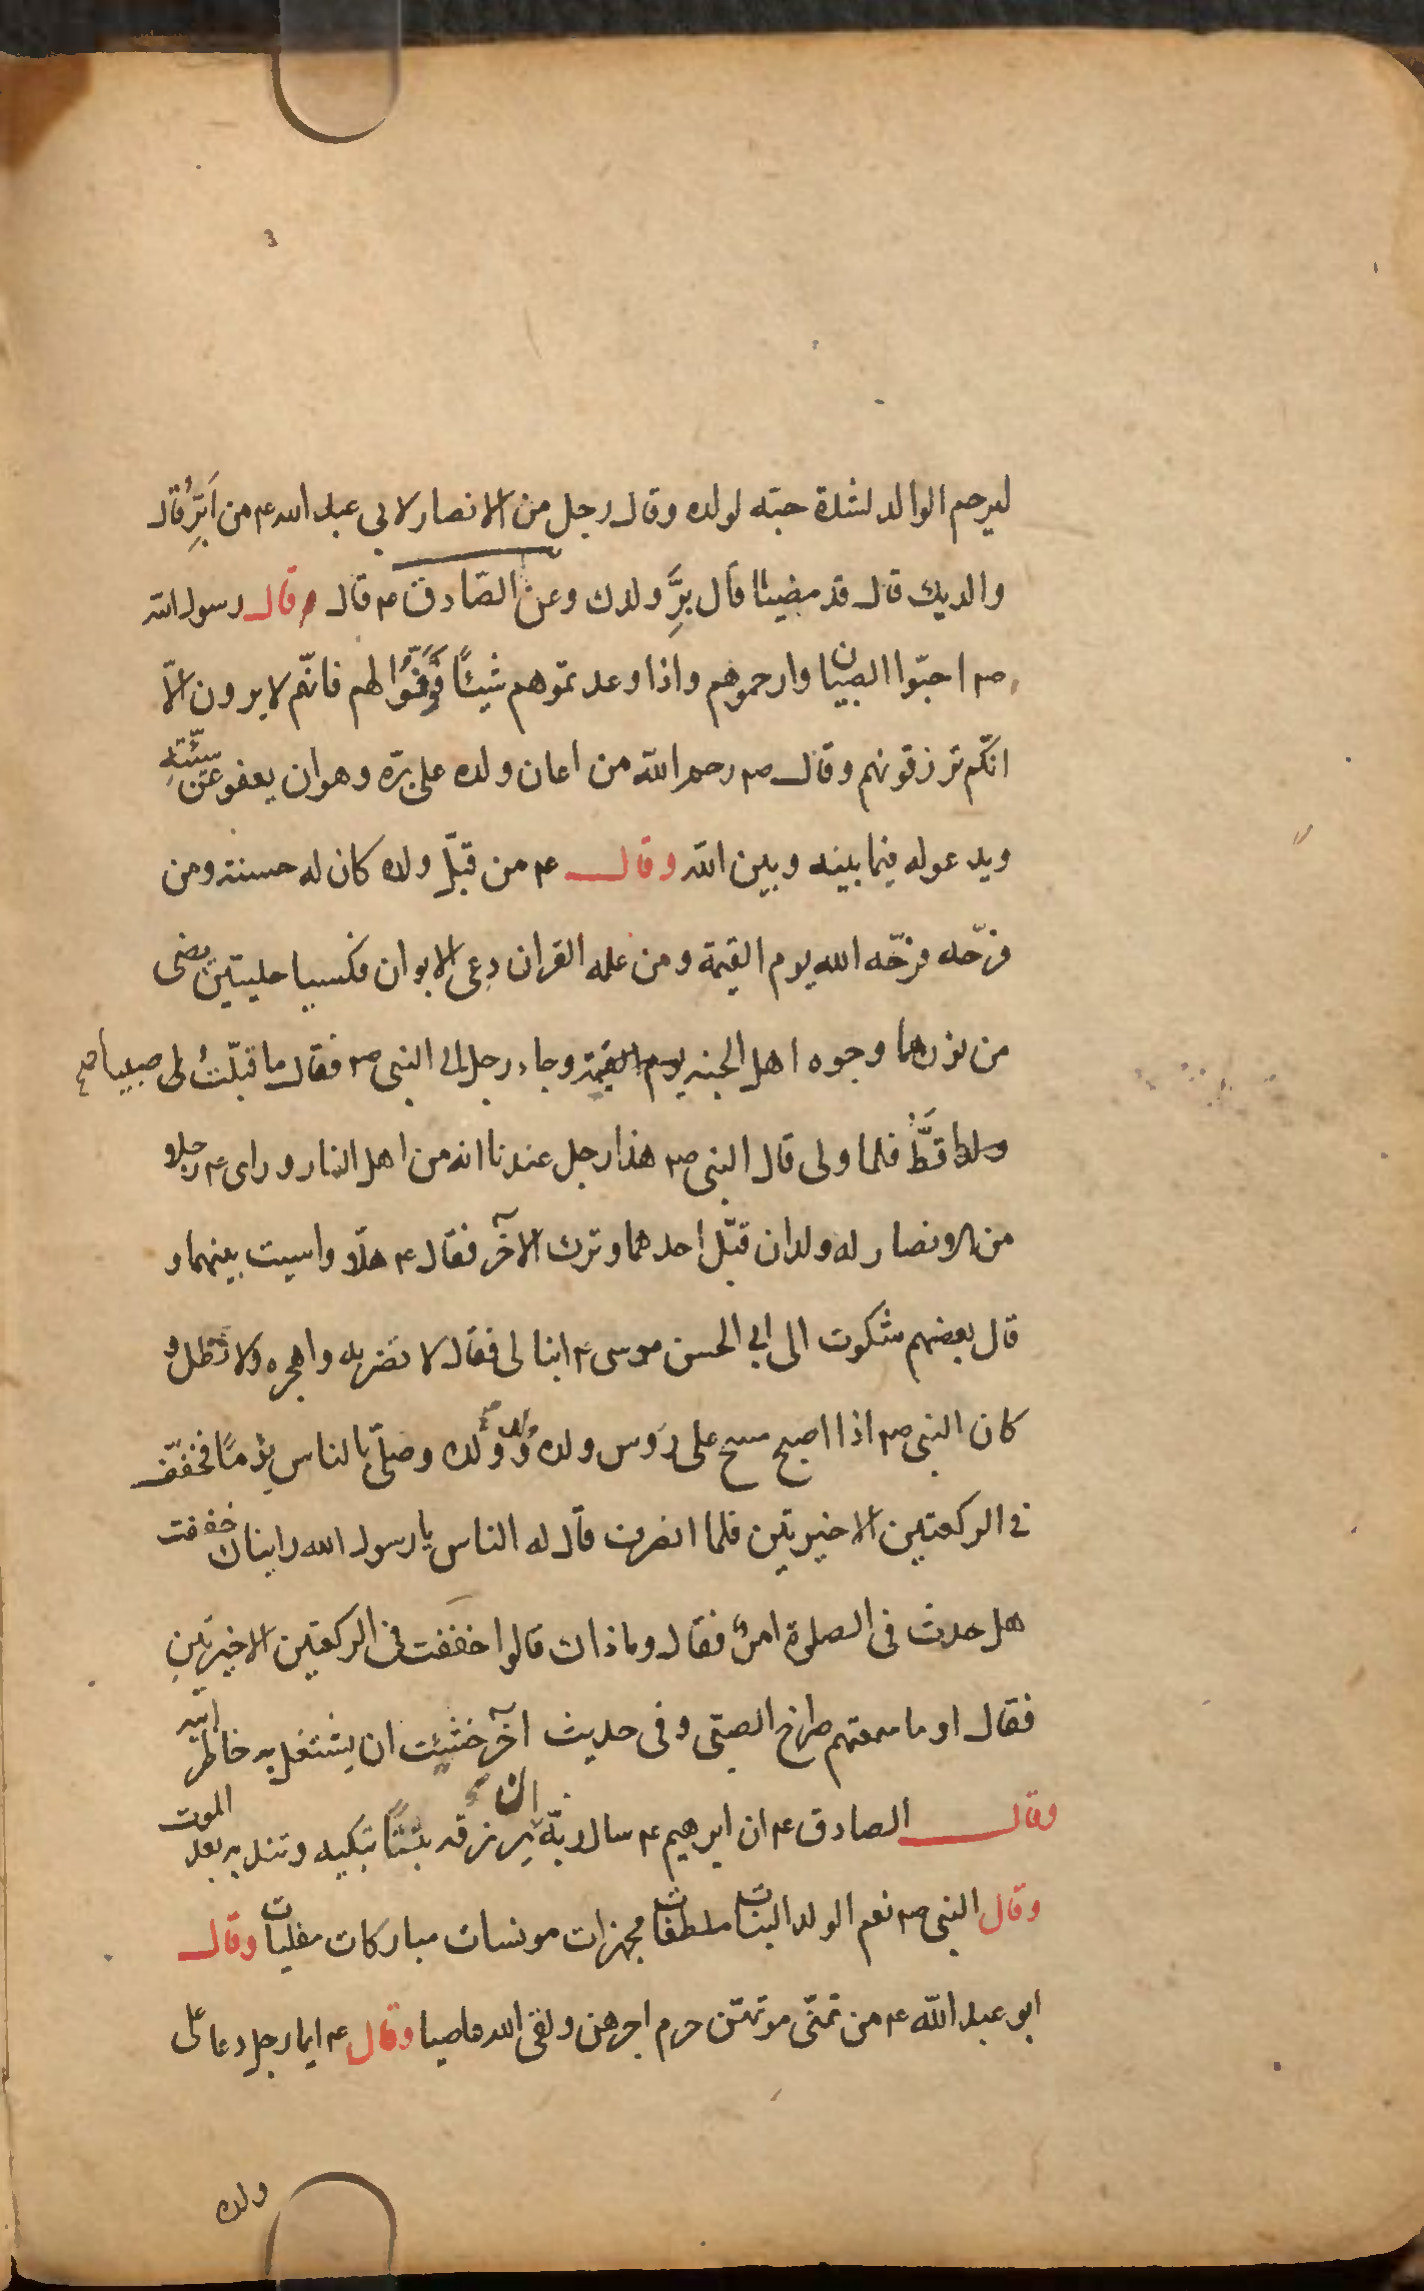 ليرحم الوالد لشدة حبّه لولده وقال رجل من الانصار لابي عبد الله ع من اَبَرُّ قال
والديك قال قد مضيا قال بِرَّ ولدك وعن الصّادق ع قال قال رسول الله
ص احبّوا الصبيان وارحموهم واذا وعدتموهم شيئًا فَوَفّوا لهم فانّهم لا يرون الّا
انّكم ترزقونهم وقال ص رحم الله من اعان ولده على برّه وهو ان يعفو عن سيّئته
ويدعو له فيما بينه وبين الله وقال ع من قبّل ولده كان له حسنة ومن
فرّحه فرّحه الله يوم القيمة ومن علمه القران دعى الابوان فكسيا حليتين يضى
من نورهما وجوه اهل الجنه يوم القيمة وجاء رجل الى النبى ص فقال ما قبّلتُ لى صبيا
قطّ فلما ولى قال النبى ص هذا رجل عندنا انه من اهل النار وراى ع رجلا
من الانصار له ولدان قبّل احدهما وترك الآخر فقال ع هلّا واسيت بينهما و
قال بعضهم شكوت الى ابي الحسن موسى ع ابنا لى فقال لا تضربه واهجره ولا تطل و
كان النبى ص اذا اصبح مسح على رؤس ولده وولد ولده وصلّى بالناس يومًا فخفّف
فى الركعتين الاخيرتين فلما انصرف قال له الناس يا رسول الله رايناك خففت
هل حدث فى الصلوة امرٌ فقال وما ذاك قالوا خففت فى الركعتين الاخيرتين
فقال او ما سمعتم صراخ الصبّى وفى حديث آخر خشيت ان يشتغل به خاطر ابيه
وقال الصادق ع ان ابرهيم ع سال ربّه ان يرزقه بنتًا تبكيه وتندبه بعد الموت
وقال النبى ص نعم الولد البنات ملطفات مجهزات مونسات مباركات مفليات وقال
ابو عبد الله ع من تمنّى موتهنّ حرم اجرهن ولقى الله عاصيا وقال ع ايما رجل دعا على
ولده